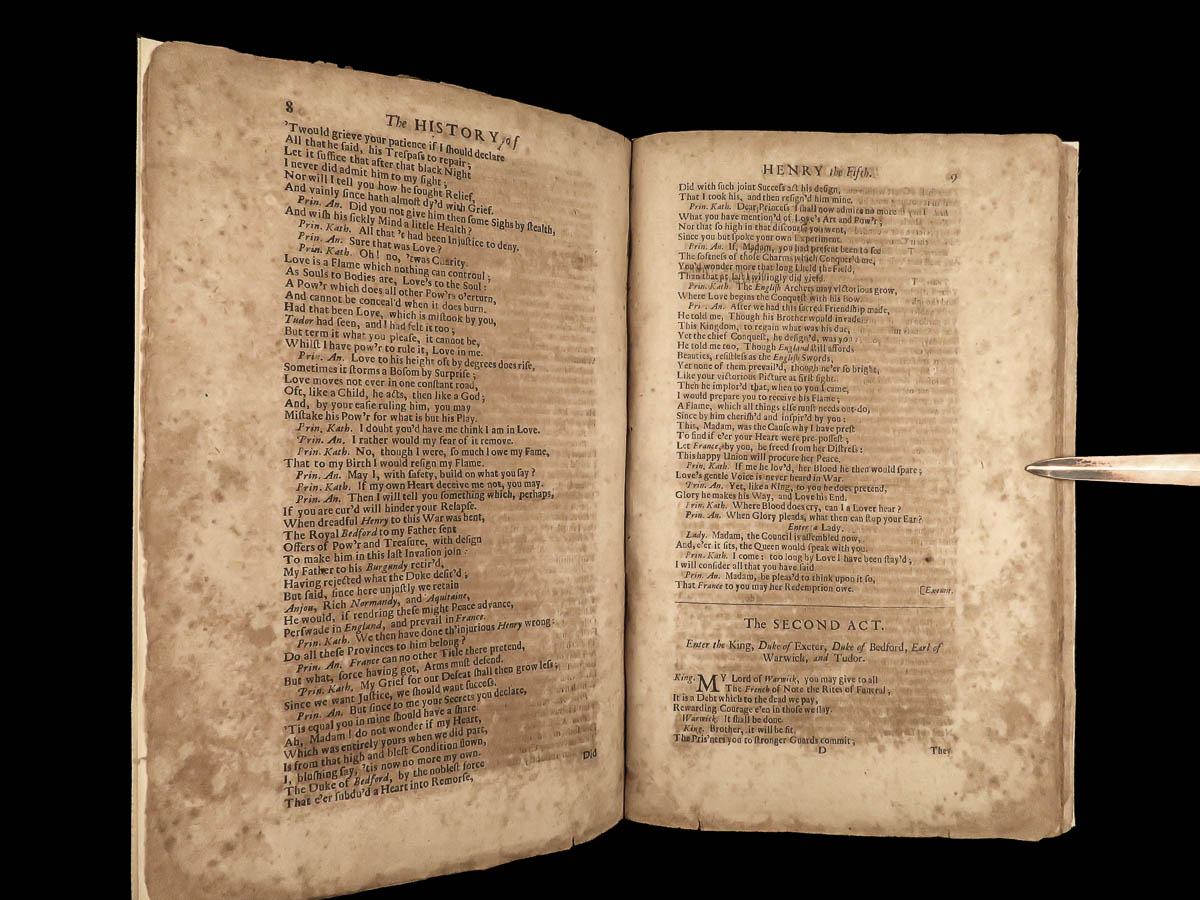 8
The HISTORY of
'Twould grieve your patience if I ſhould declare
All that he ſaid, his Treſpaſs to repair;
Let it ſuffice that after that black Night
I never did admit him to my ſight;
Nor will I tell you how he ſought Relief,
And vainly ſince hath almoſt dy'd with Grief.
Prin. An. Did you not give him then ſome Sighs by ſtealth,
And wiſh his ſickly Mind a little Health?
Prin. Kath. All that 't had been Injuſtice to deny.
Prin. An. Sure that was Love?
Prin. Kath. Oh! no, 'twas Charity.
Love is a Flame which nothing can controul;
As Souls to Bodies are, Love's to the Soul:
A Pow'r which does all other Pow'rs o'erturn,
And cannot be conceal'd when it does burn.
Had that been Love, which is miſtook by you,
Tudor had ſeen, and I had felt it too;
But term it what you pleaſe, it cannot be,
Whilſt I have pow'r to rule it, Love in me.
Prin. An. Love to his height oft by degrees does riſe,
Sometimes it ſtorms a Boſom by Surpriſe;
Love moves not ever in one conſtant road,
Oft, like a Child, he acts, then like a God;
And, by your eaſie ruling him, you may
Miſtake his Pow'r for what is but his Play.
Prin. Kath. I doubt you'd have me think I am in Love.
Prin. An. I rather would my fear of it remove.
Prin. Kath. No, though I were, ſo much I owe my Fame,
That to my Birth I would reſign my Flame.
Prin. An. May I, with ſafety, build on what you ſay?
Prin. Kath. If my own Heart deceive me not, you may.
Prin. An. Then I will tell you ſomething which, perhaps,
If you are cur'd will hinder your Relapſe.
When dreadful Henry to this War was bent,
The Royal Bedford to my Father ſent
Offers of Pow'r and Treaſure, with deſign
To make him in this laſt Invaſion join:
My Father to his Burgundy retir'd,
Having rejected what the Duke deſir'd;
But ſaid, ſince here unjuſtly we retain
Anjou, Rich Normandy, and Aquitaine,
He would, if rendring theſe might Peace advance,
Perſwade in England, and prevail in France.
Prin. Kath. We then have done th'injurious Henry wrong:
Do all theſe Provinces to him belong?
Prin. An. France can no other Title there pretend,
But what, force having got, Arms muſt defend.
Prin. Kath. My Grief for our Defeat ſhall then grow leſs;
Since we want Juſtice, we ſhould want ſucceſs.
Prin. An. But ſince to me your Secrets you declare,
'Tis equal you in mine ſhould have a ſhare.
Ah, Madam! do not wonder if my Heart,
Which was entirely yours when we did part,
Is from that high and bleſt Condition flown,
I, bluſhing ſay, 'tis now no more my own.
The Duke of Bedford, by the nobleſt force
That e'er ſubdu'd a Heart into Remorſe,
Did
HENRY the Fifth.
9
Did with ſuch joint Succeſs act his deſign,
That I took his, and then reſign'd him mine.
Prin. Kath. Dear Princeſs I ſhall now admire no more
What you have mention'd of Love's Art and Pow'r;
Nor that ſo high in that diſcourſe you went,
Since you but ſpoke your own Experiment.
Prin. An. If, Madam, you had preſent been to ſee
The ſoftneſs of thoſe Charms which Conquer'd me,
You'd wonder more that long I held the Field,
Than that at laſt I willingly did yield.
Prin. Kath. The Engliſh Archers may victorious grow,
Where Love begins the Conqueſt with his Bow.
Prin. An. After we had this ſacred Friendſhip made,
He told me, Though his Brother would invade
This Kingdom, to regain what was his due,
Yet the chief Conqueſt, he deſign'd, was you:
He told me too, Though England ſtill affords
Beauties, reſiſtleſs as the Engliſh Swords,
Yet none of them prevail'd, though ne'er ſo bright,
Like your victorious Picture at firſt ſight.
Then he implor'd that, when to you I came,
I would prepare you to receive his Flame;
A Flame, which all things elſe muſt needs out-do,
Since by him cheriſh'd and inſpir'd by you:
This, Madam, was the Cauſe why I have preſt
To find if e'er your Heart were pre-poſſeſt;
Let France, by you, be freed from her Diſtreſs:
This happy Union will procure her Peace.
Prin. Kath. If me he lov'd, her Blood he then would ſpare;
Love's gentle Voice is never heard in War.
Prin. An. Yet, like a King, to you he does pretend,
Glory he makes his Way, and Love his End.
Prin. Kath. Where Blood does cry, can I a Lover hear?
Prin. An. When Glory pleads, what then can ſtop your Ear?
Enter a Lady.
Lady. Madam, the Council is aſſembled now,
And, e'er it ſits, the Queen would ſpeak with you.
Prin. Kath. I come: too long by Love I have been ſtay'd;
I will conſider all that you have ſaid
Prin. An. Madam, be pleas'd to think upon it ſo,
That France to you may her Redemption owe.
[Exeunt.
The SECOND ACT.
Enter the King, Duke of Exeter, Duke of Bedford, Earl of
Warwick, and Tudor.
King. MY Lord of Warwick, you may give to all
The French of Note the Rites of Funeral;
It is a Debt which to the dead we pay,
Rewarding Courage e'en in thoſe we ſlay.
Warwick. It ſhall be done.
King. Brother, it will be fit,
The Pris'ners you to ſtronger Guards commit;
D
They